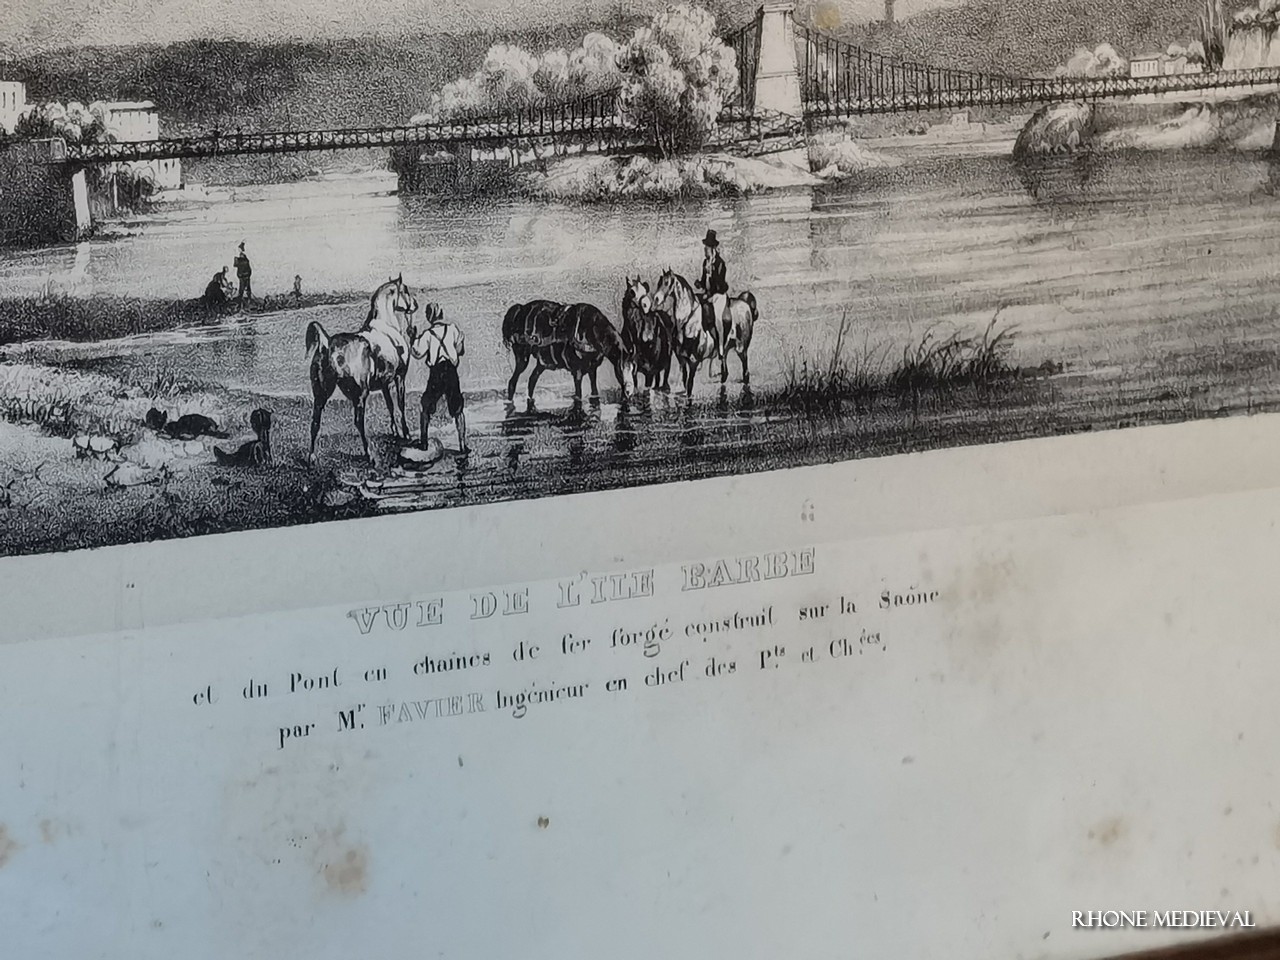 VUE DE L'ILE BARBE
et du Pont en chaines de fer forgé construit sur la Saône
par Mr. FAVIER Ingénieur en chef des P.ts et Ch.ées.
RHONE MEDIEVAL